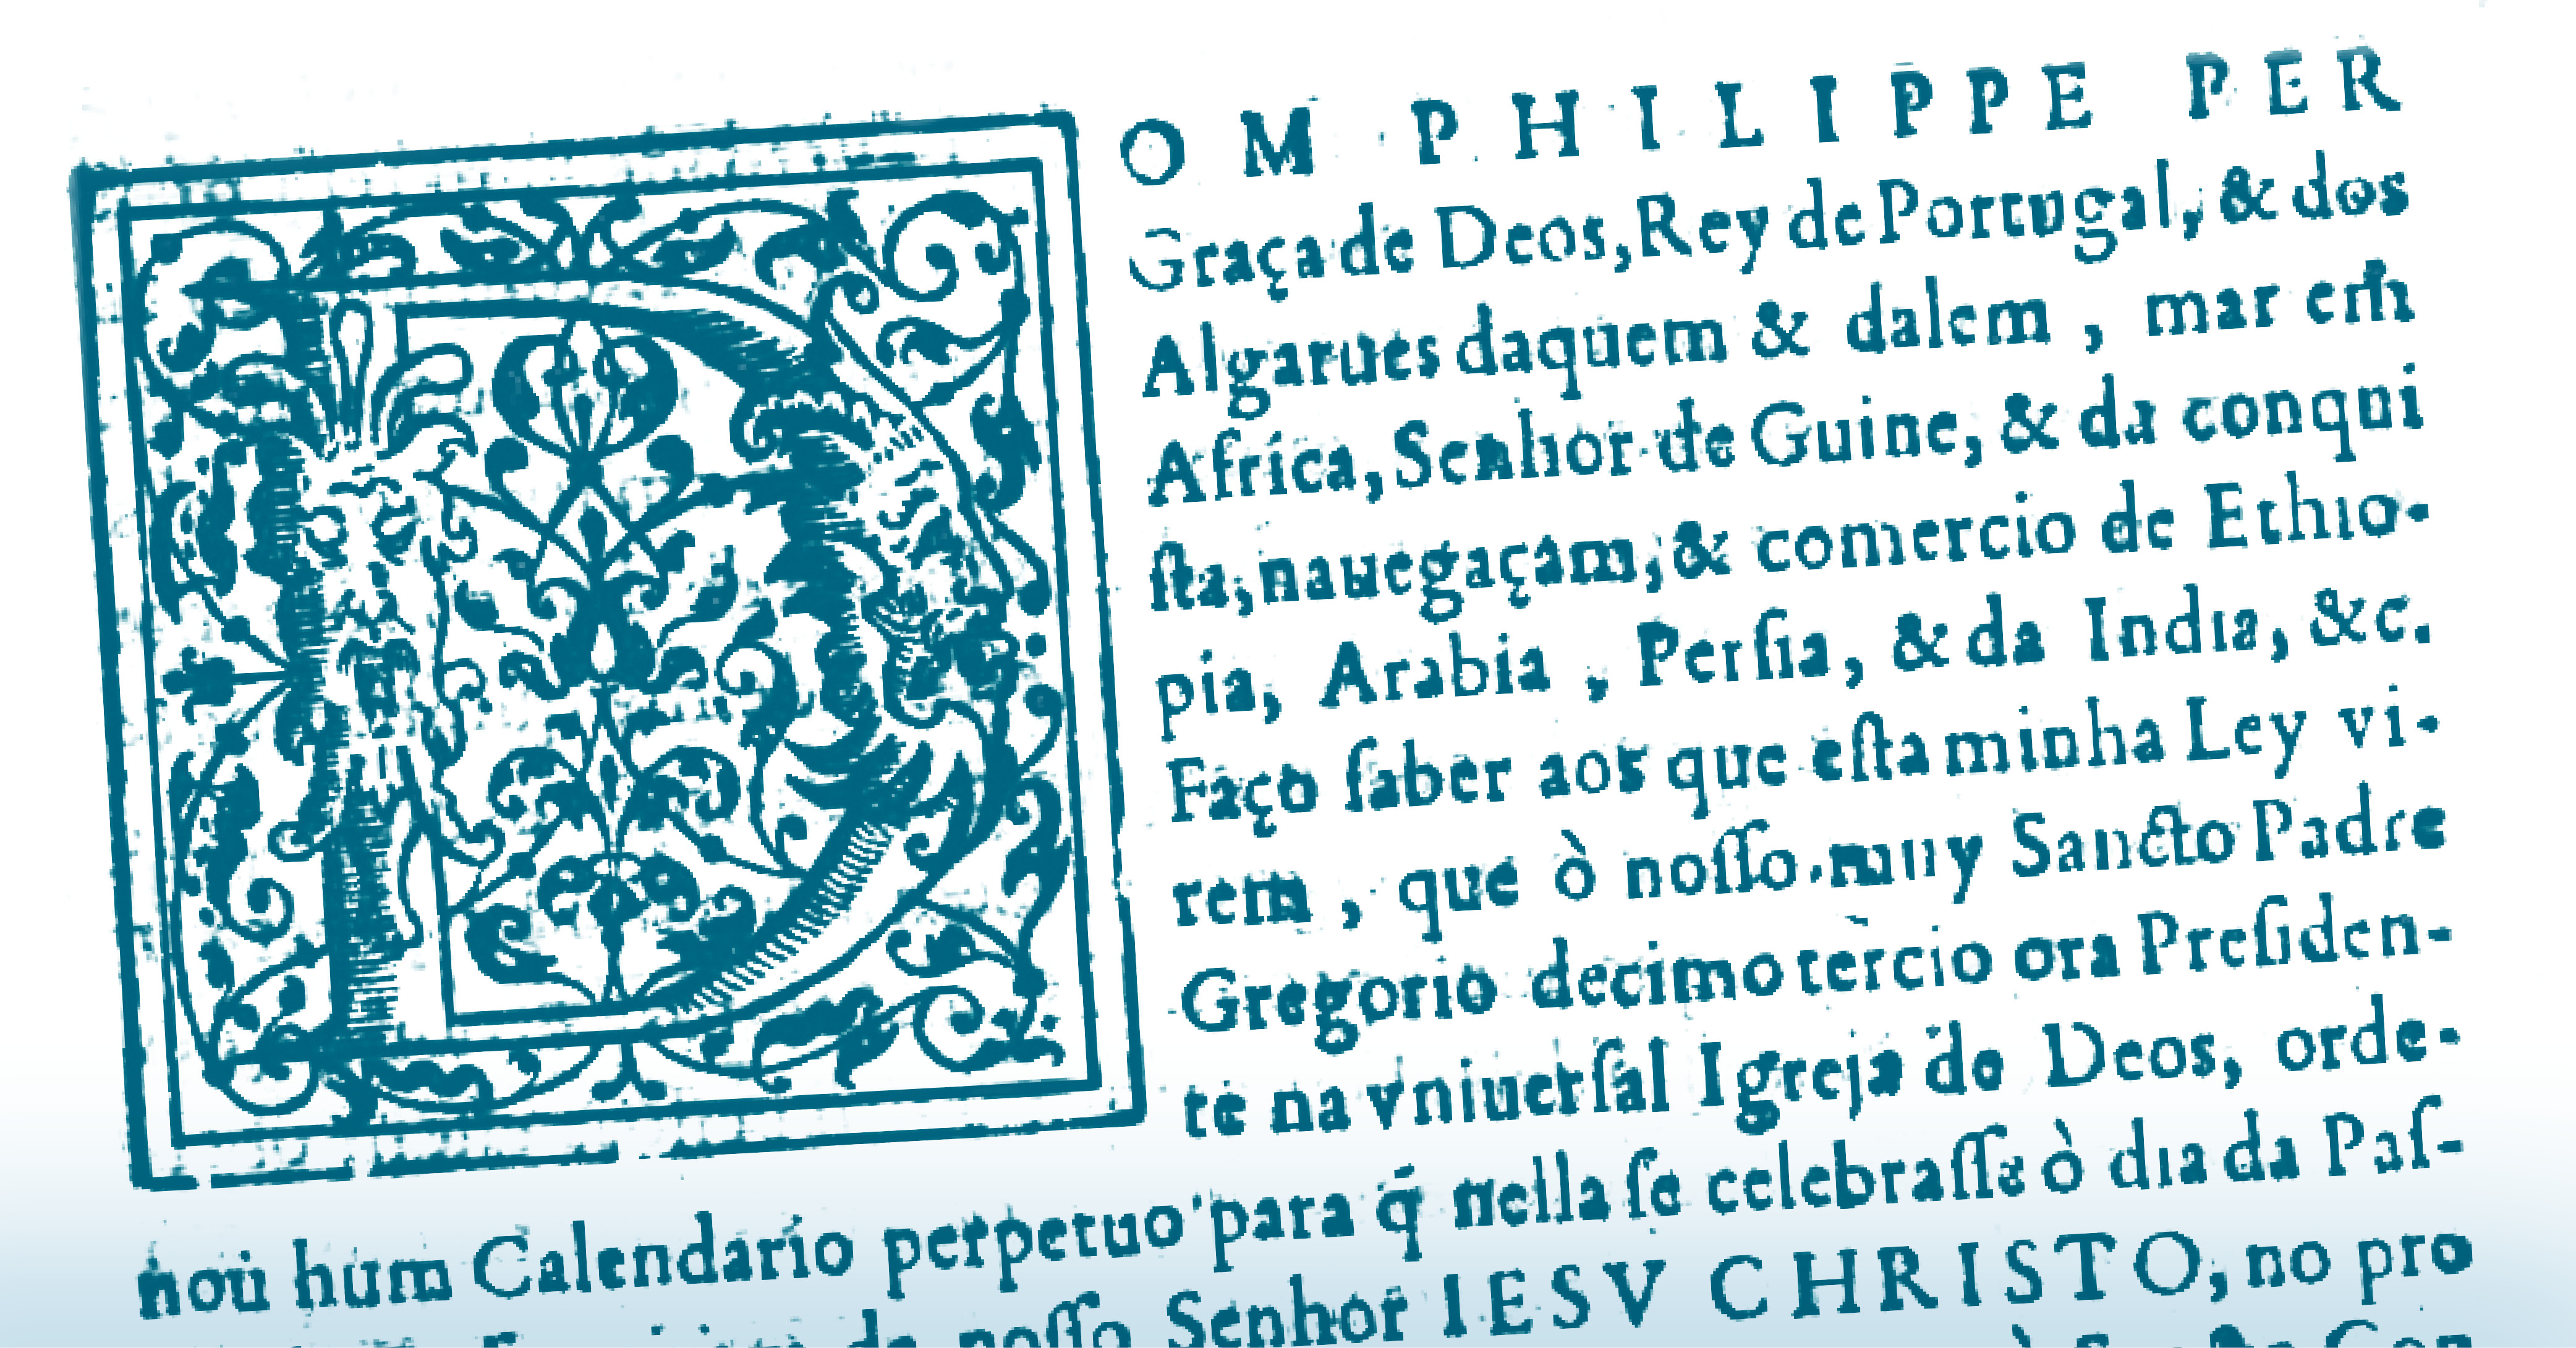 DOM PHILIPPE PER
Graça de Deos, Rey de Portugal, & dos
Algarues daquem & dalem , mar em
Africa, Senhor de Guine, & da conqui
ſta, nauegaçam, & comercio de Ethio-
pia, Arabia , Perſia, & da India, &c.
Faço ſaber aos que eſta minha Ley vi-
rem , que ò noſſo muy Sancto Padre
Gregorio decimo tercio ora Preſiden-
te na vniuerſal Igreja de Deos, orde-
nou hum Calendario perpetuo para q̃ nella ſe celebraſſe ò dia da Paſ-
de noſſo Senhor IESV CHRISTO, no pro